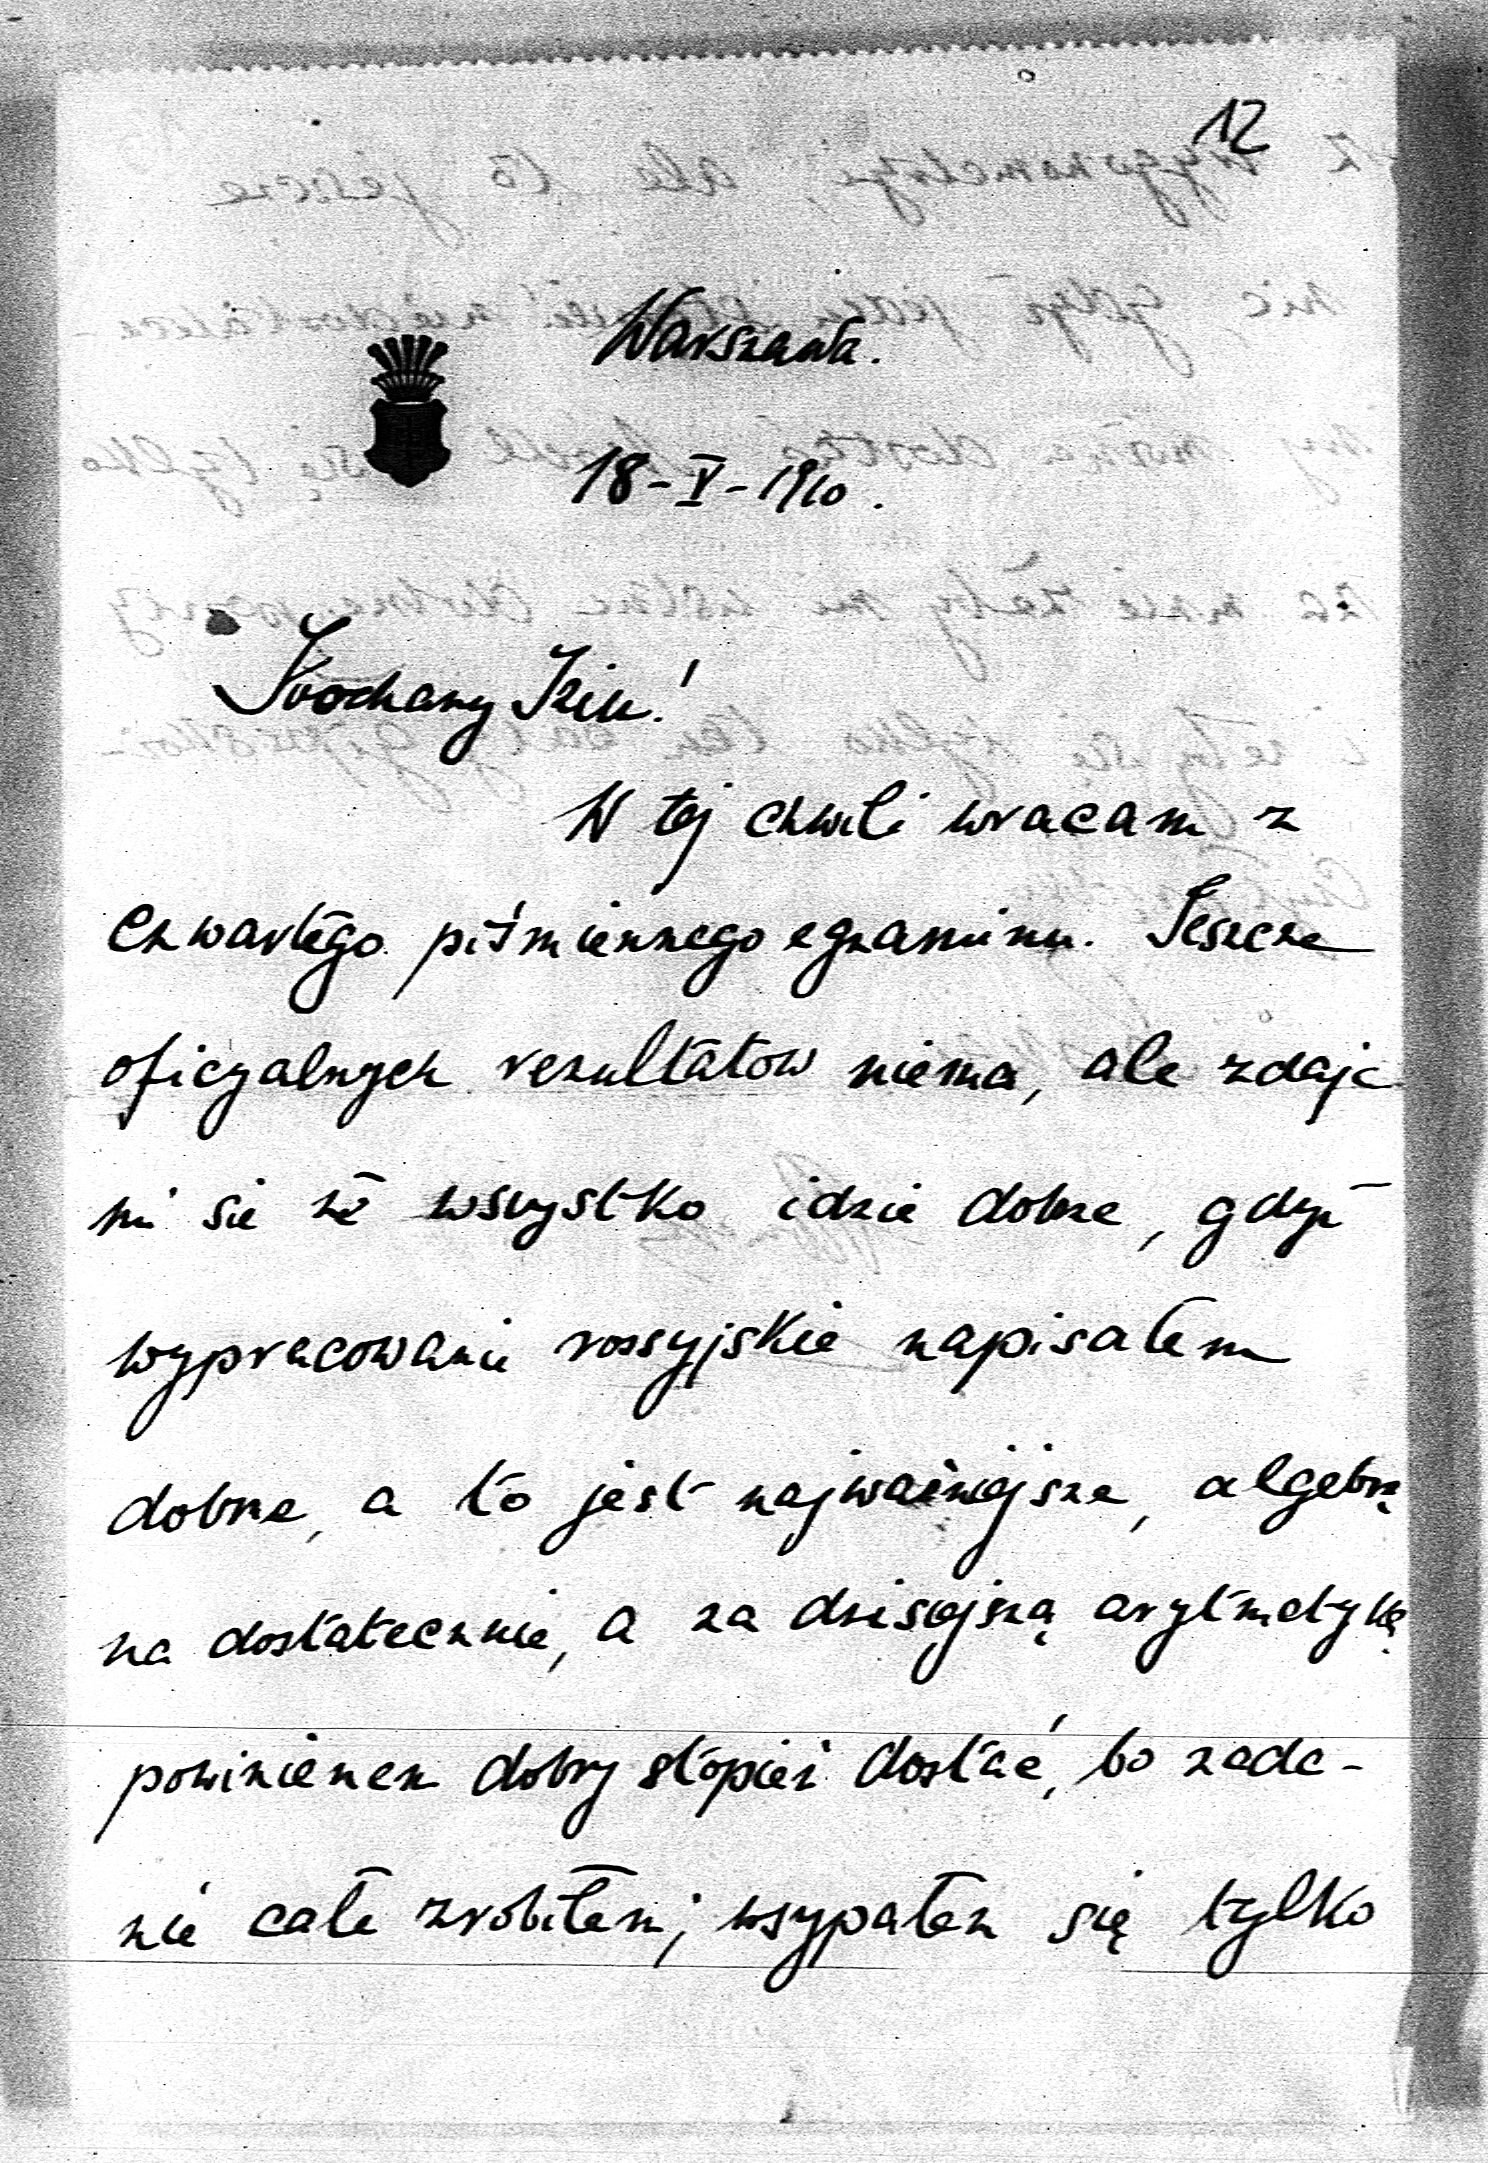 12
Warszawa.
18-V-1910.
Kochany Iziu!
W tej chwili wracam z
czwartego piśmiennego egzaminu. Jeszcze
oficyalnych rezultatow niema, ale zdaje
mi sie że wszystko idzie dobrze, gdyż
wypracowanie rossyjskie napisałem
dobrze, a to jest najważniejsze, algebrę
na dostatecznie, a za dzisiejszą arytmetykę
powinienen dobry stopień dostać, bo zada-
nie całe zrobiłem; wsypałem się tylko